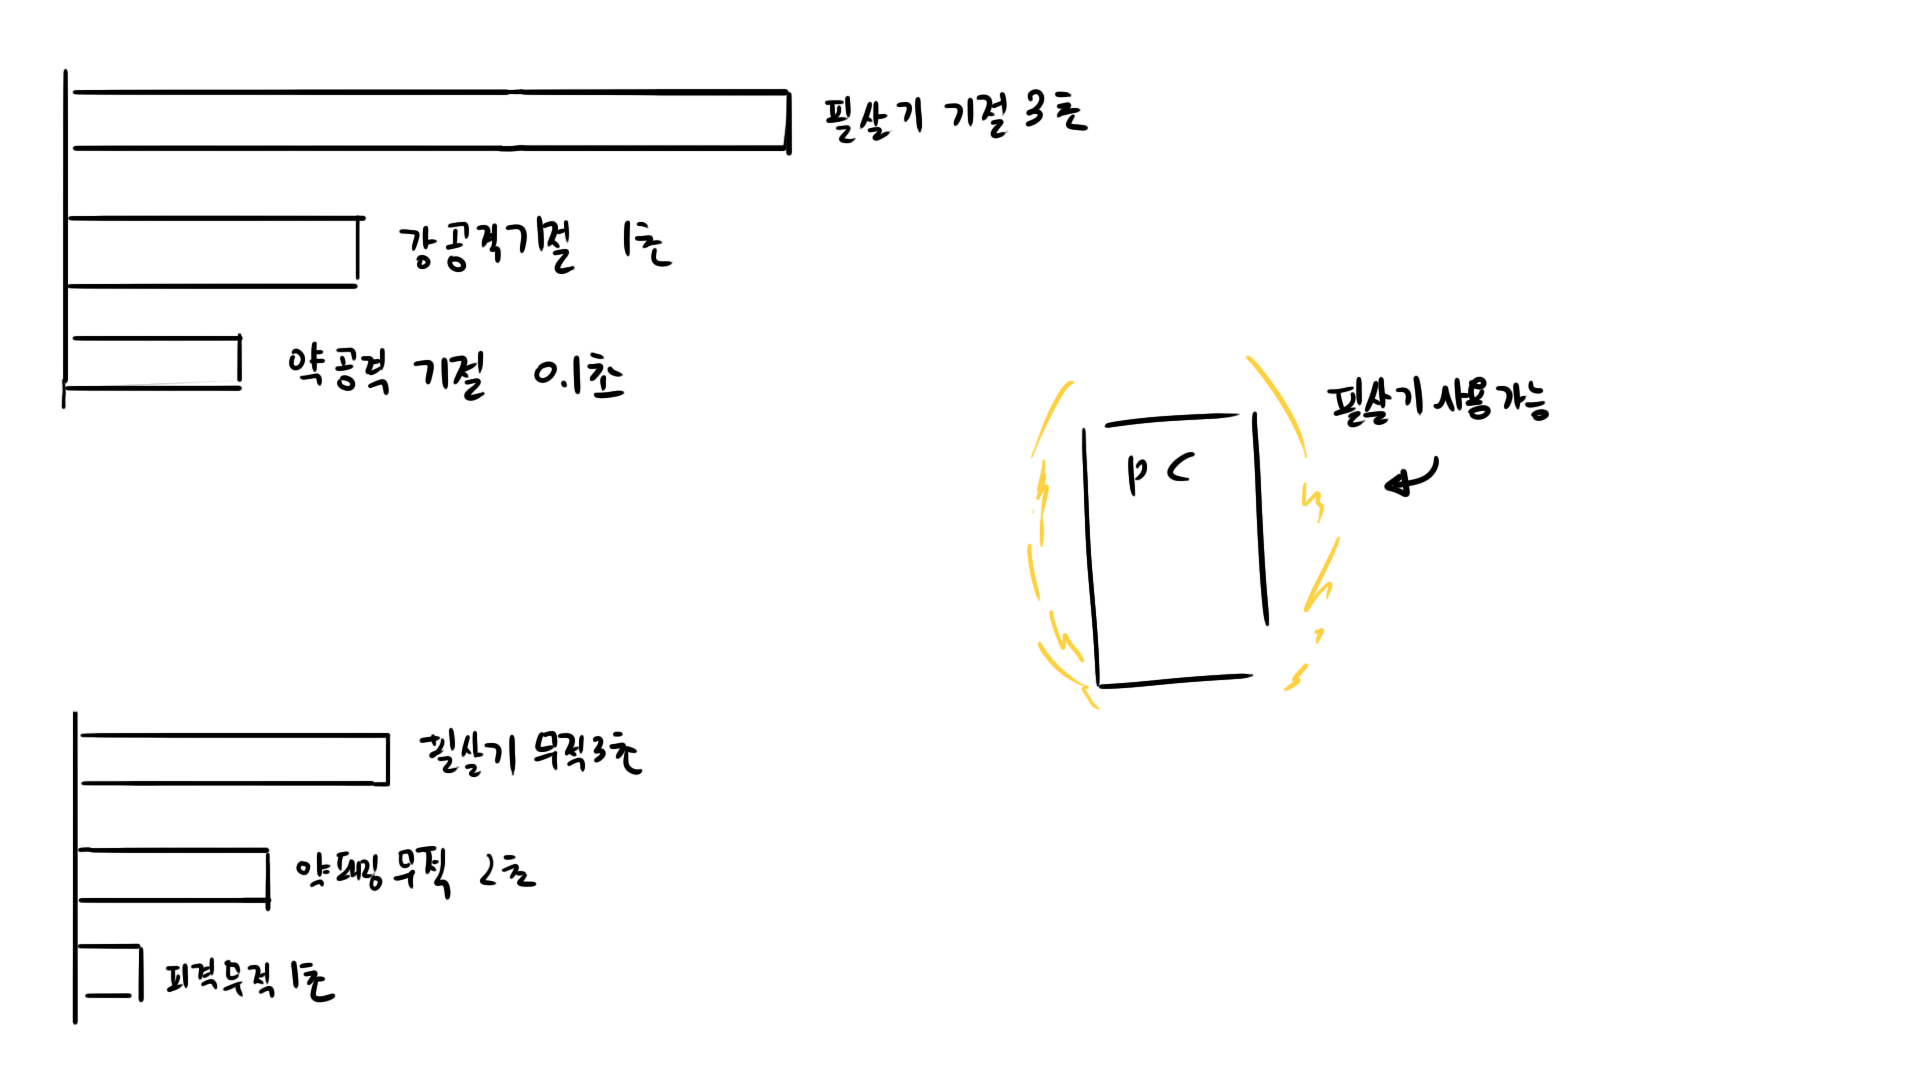 필살기 기절 3초
강공격기절 1초
약공격 기절 0.1초
필살기 사용가능
PC
필살기 무적3초
약패링 무적 2초
피격무적 1초